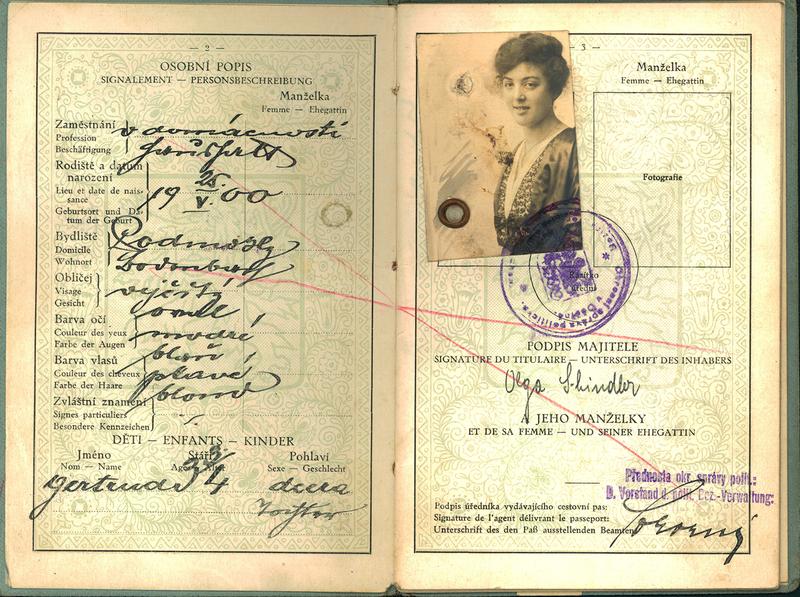 — 2 —
OSOBNÍ POPIS
SIGNALEMENT — PERSONSBESCHREIBUNG
Manželka
Femme — Ehegattin
Zaměstnání
Profession
Beschäftigung
v domácnosti
Haushalt
Rodiště a datum
narození
Lieu et date de nais-
sance
Geburtsort und Da-
tum der Geburt
19 25./V. 00
Bydliště
Domicile
Wohnort
Podmokly
Bodenbach
Obličej
Visage
Gesicht
vejčitý
oval
Barva očí
Couleur des yeux
Farbe der Augen
modré
blau
Barva vlasů
Couleur des cheveux
Farbe der Haare
plavé
blond
Zvláštní znamení
Signes particuliers
Besondere Kennzeichen
DĚTI — ENFANTS — KINDER
Jméno Stáří Pohlaví
Nom — Name Age — Alter Sexe — Geschlecht
Gertruda dcera
Tochter
— 3 —
Manželka
Femme — Ehegattin
Fotografie
Razítko
úřední
Okresní správa politická
PODPIS MAJITELE
SIGNATURE DU TITULAIRE — UNTERSCHRIFT DES INHABERS
Olga Schindler
A JEHO MANŽELKY
ET DE SA FEMME — UND SEINER EHEGATTIN
Přednosta okr. správy polit.:
D. Vorstand d. polit. Bez.-Verwaltung:
Podpis úředníka vydávajícího cestovní pas:
Signature de l'agent délivrant le passeport:
Unterschrift des den Paß ausstellenden Beamten: